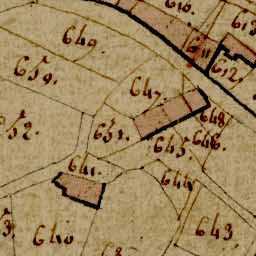 610.
613
649.
611
659.
612.
647.
648
652.
651.
646.
645.
641.
644
640
643.